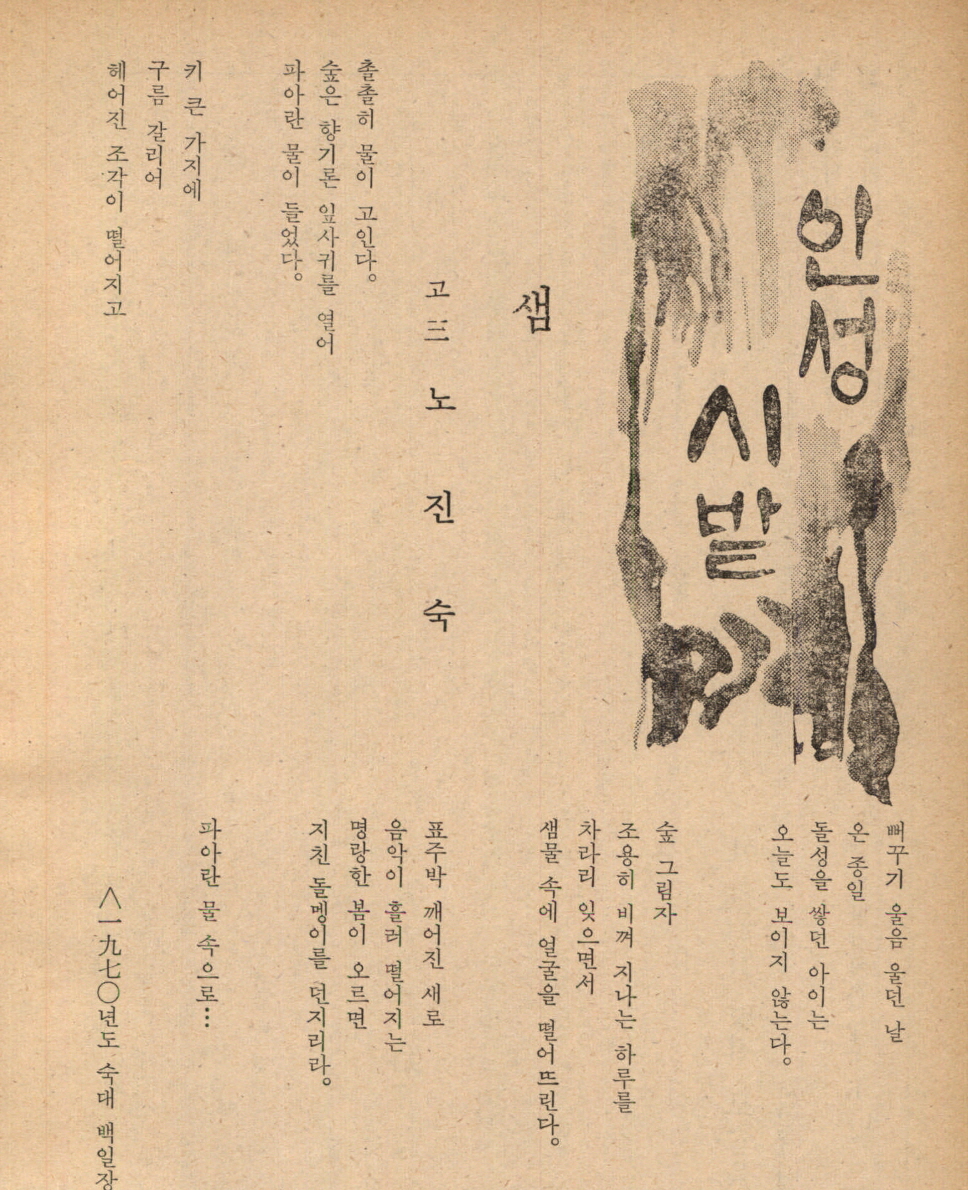 인성
시밭
샘
고三 노진숙
촐촐히 물이 고인다。
숲은 향기론 잎사귀를 열어
파아란 물이 들었다。
키 큰 가지에
구름 갈리어
헤어진 조각이 떨어지고
뻐꾸기 울음 울던 날
온 종일
돌성을 쌓던 아이는
오늘도 보이지 않는다。
숲 그림자
조용히 비껴 지나는 하루를
차라리 잊으면서
샘물 속에 얼굴을 떨어뜨린다。
표주박 깨어진 새로
음악이 흘러 떨어지는
명랑한 봄이 오르면
지친 돌멩이를 던지리라。
파아란 물 속으로…
<一九七〇년도 숙대 백일장